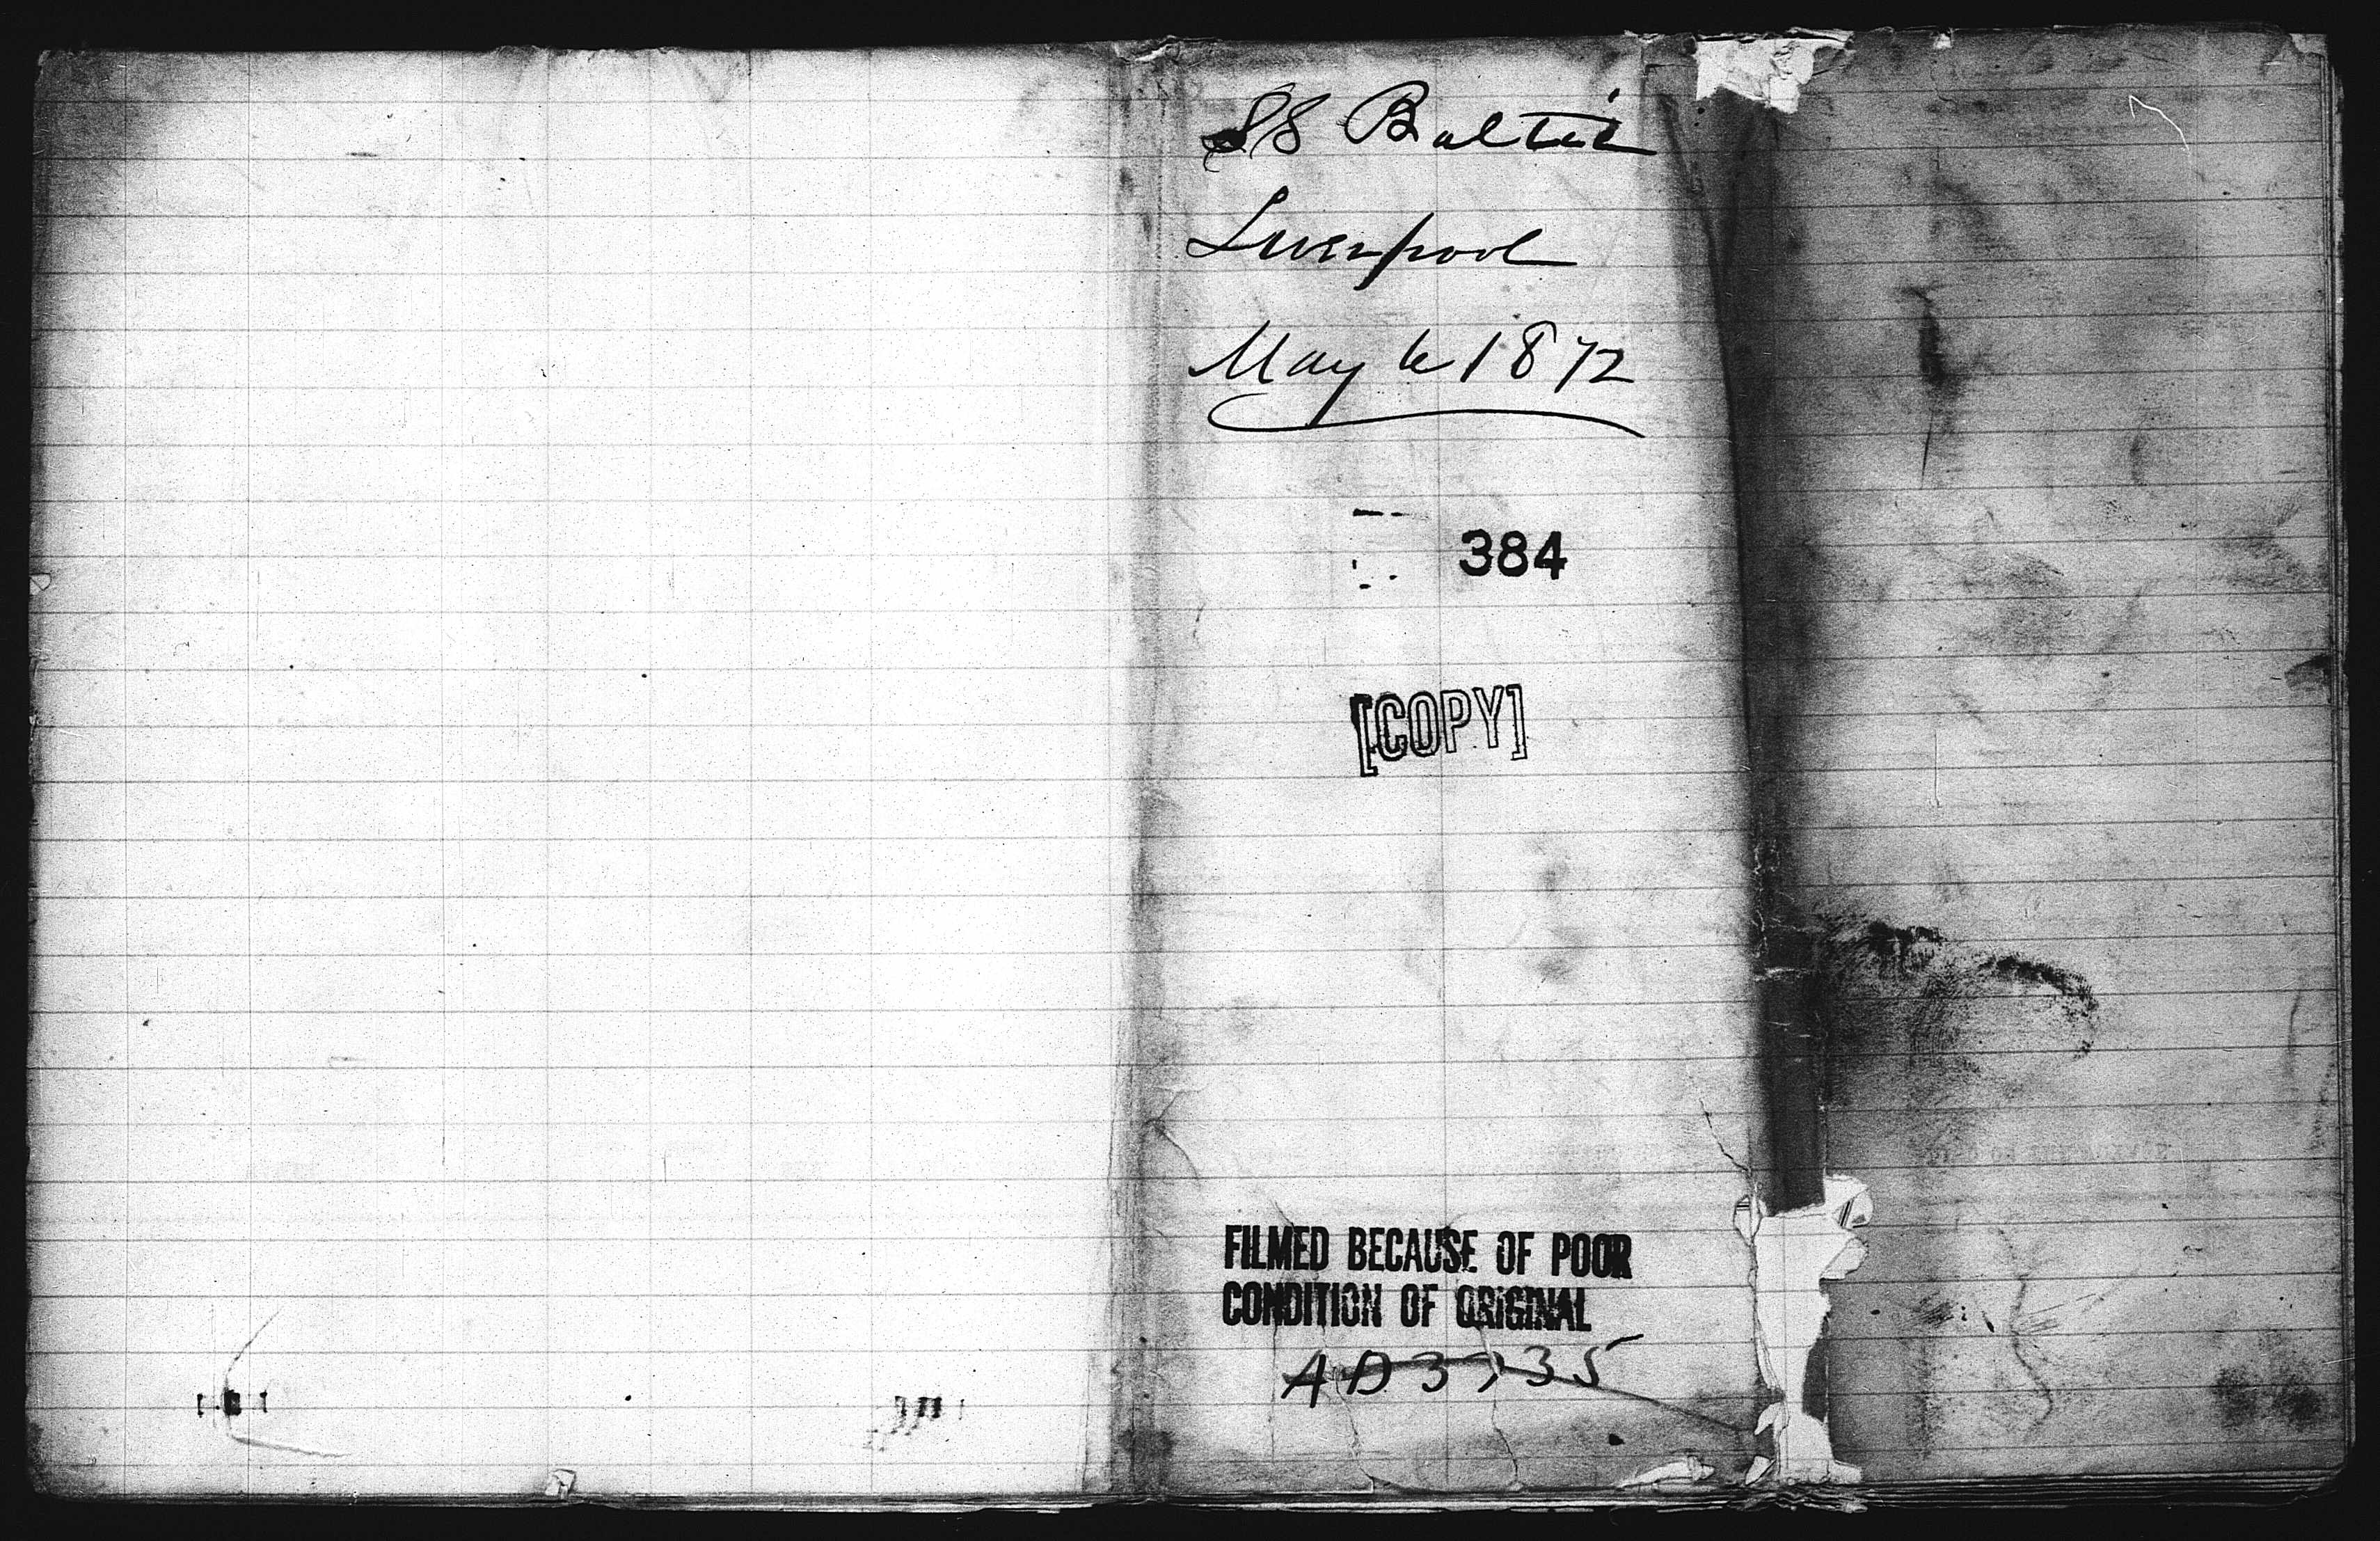 SS Baltic
Liverpool
May 6 1872
384
[COPY]
FILMED BECAUSE OF POOR
CONDITION OF ORIGINAL